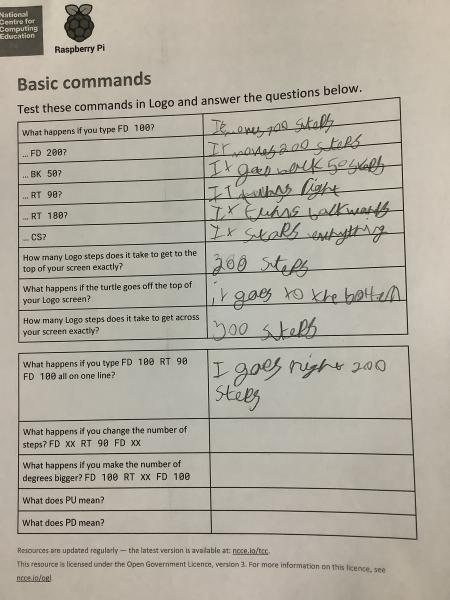 National
Centre for
Computing
Education
Raspberry Pi
Basic commands
Test these commands in Logo and answer the questions below.
What happens if you type FD 100?
It moves 100 steps
... FD 200?
It moves 200 steps
... BK 50?
It goes back 50 steps
... RT 90?
It turns right
... RT 180?
It turns backwards
... CS?
It everything
How many Logo steps does it take to get to the
top of your screen exactly?
200 steps
What happens if the turtle goes off the top of
your Logo screen?
it goes to the
How many Logo steps does it take to get across
your screen exactly?
300 steps
What happens if you type FD 100 RT 90
FD 100 all on one line?
I goes right 200
steps
What happens if you change the number of
steps? FD XX RT 90 FD XX
What happens if you make the number of
degrees bigger? FD 100 RT XX FD 100
What does PU mean?
What does PD mean?
Resources are updated regularly — the latest version is available at: ncce.io/tcc.
This resource is licensed under the Open Government Licence, version 3. For more information on this licence, see
ncce.io/ogl.